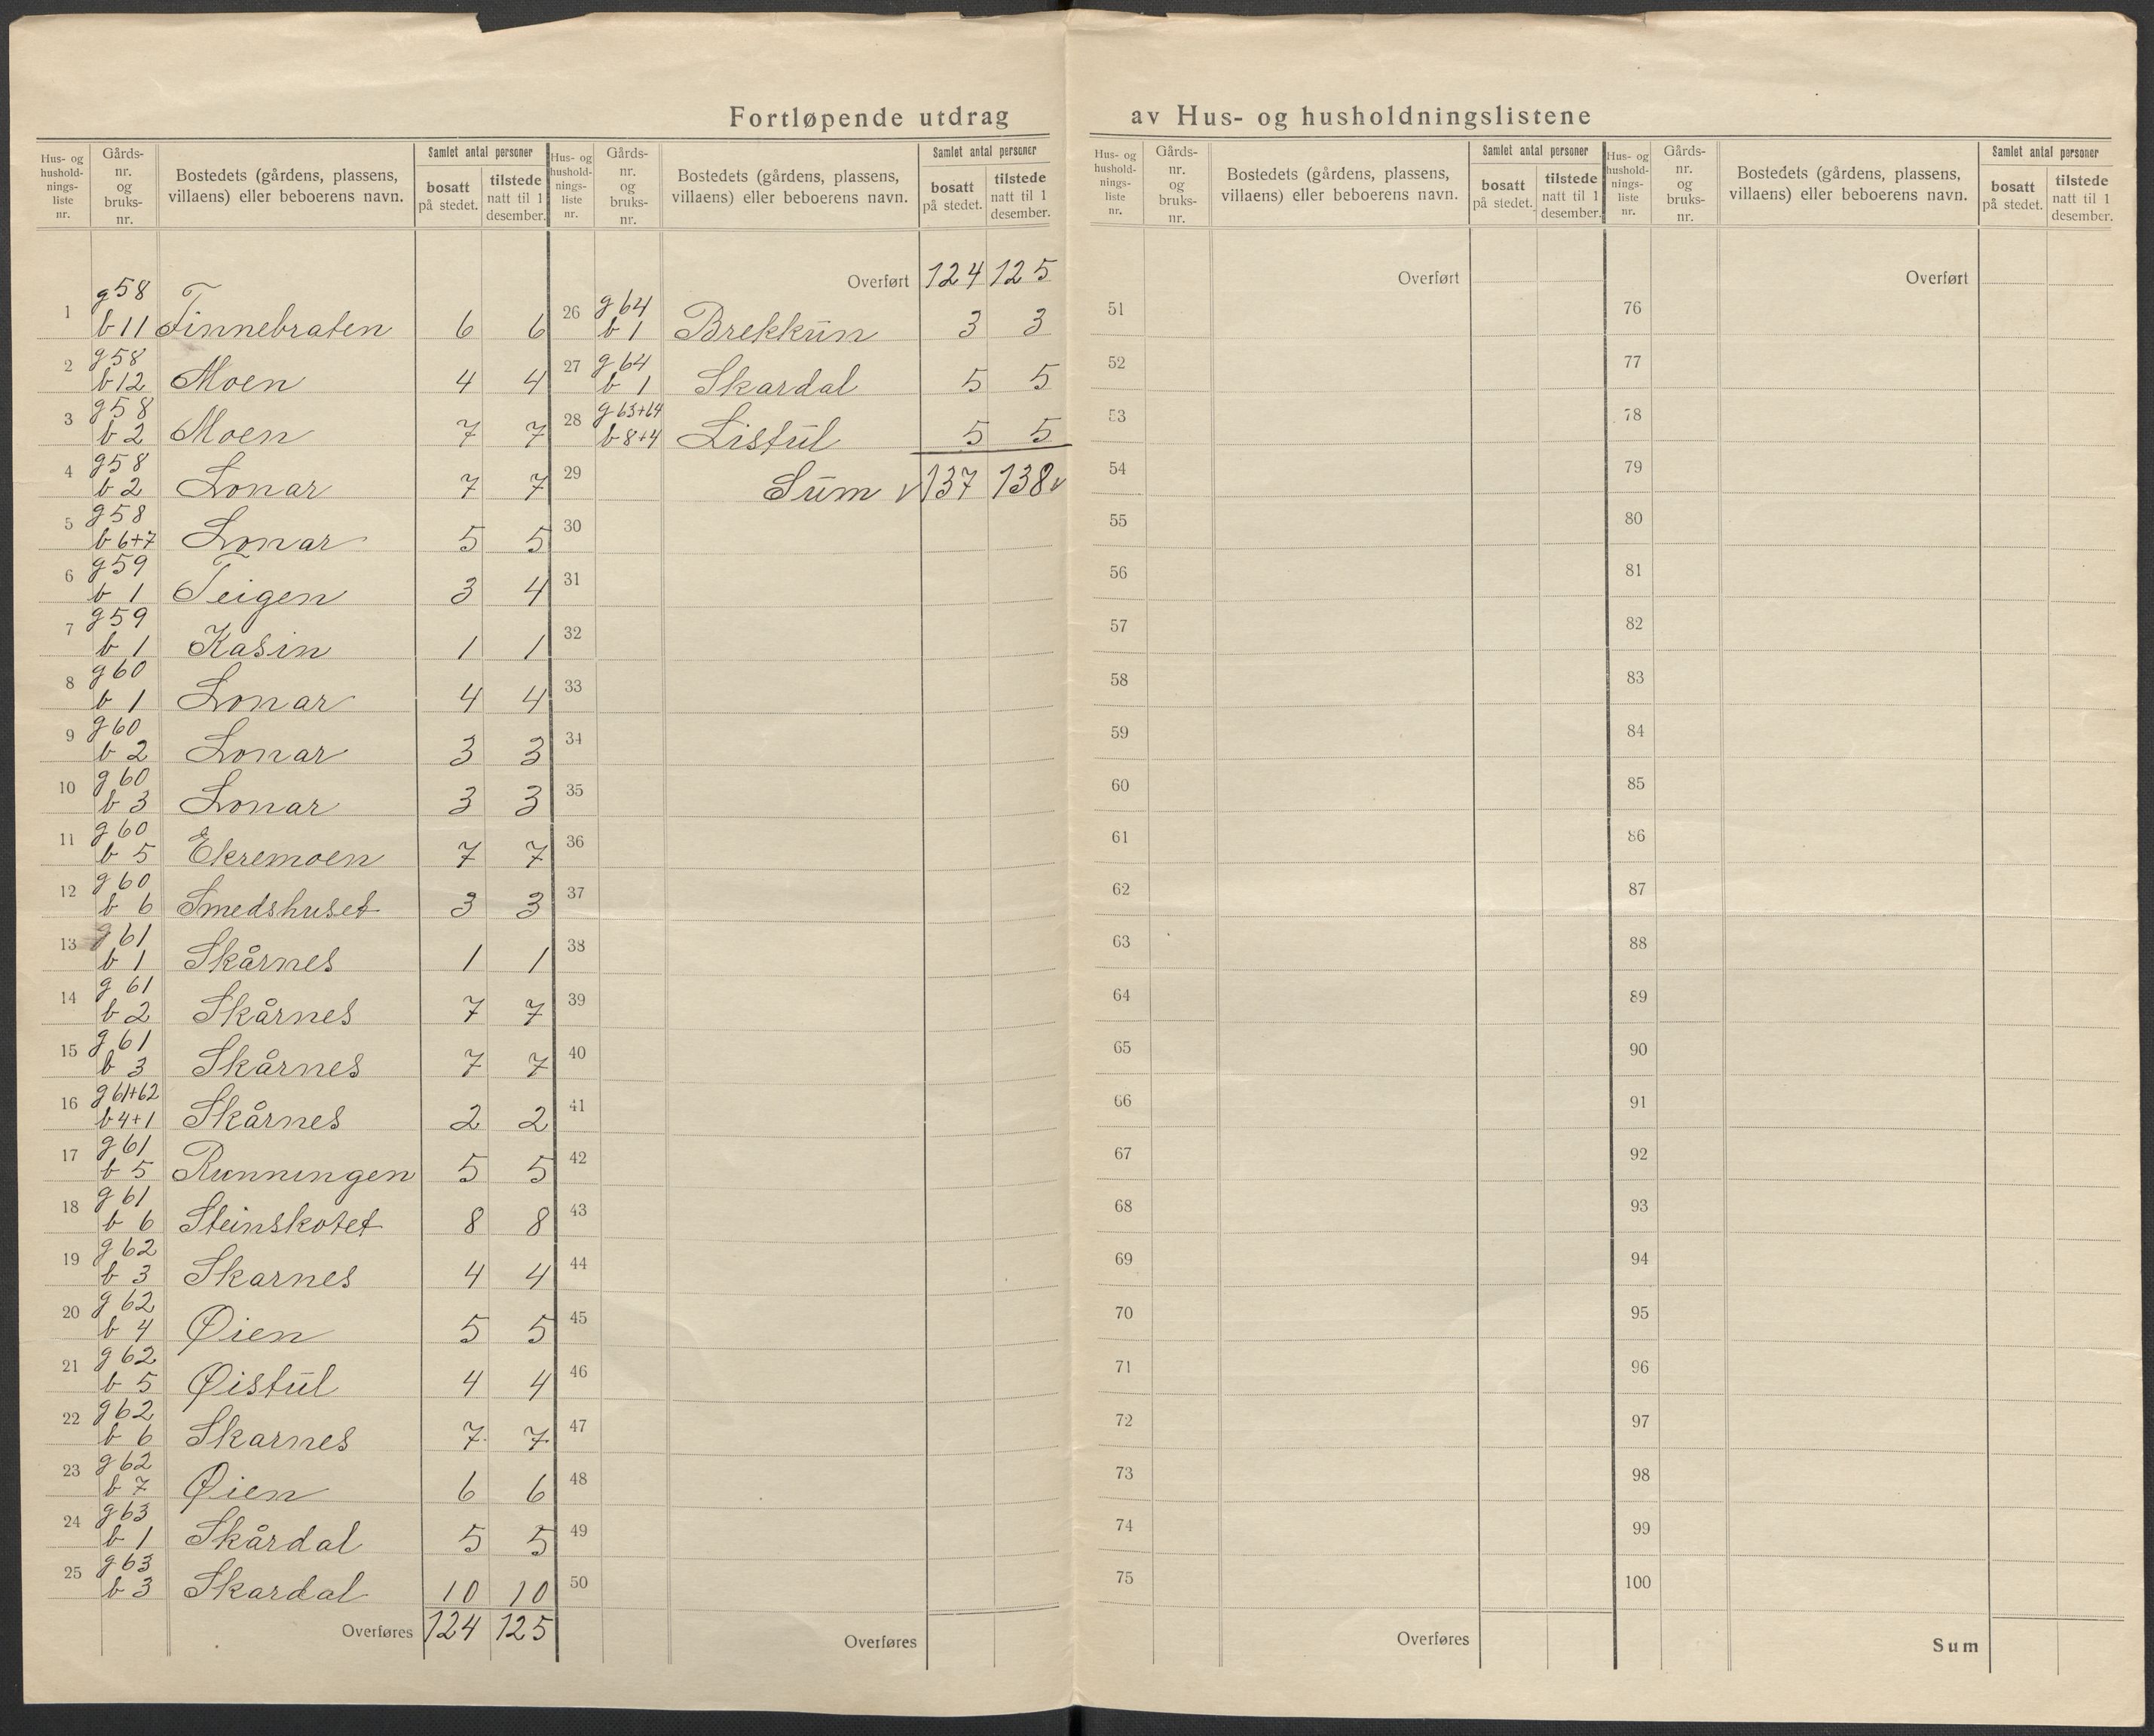 Fortløpende utdrag av Hus- og husholdningslistene
Hus- og hushold- nings- liste nr. | Gårds- nr. og bruks- nr. | Bostedets (gårdens, plassens, villaens) eller beboerens navn. | Samlet antal personer | bosatt på stedet. | tilstede natt til 1 desember.
1 g58 b11 Finnebraten 6 6
2 g58 b12 Moen 4 4
3 g58 b2 Moen 7 7
4 g58 b2 Lonar 7 7
5 g58 b6+7 Lonar 5 5
6 g59 b1 Teigen 3 4
7 g59 b1 Kasin 1 1
8 g60 b1 Lonar 4 4
9 g60 b2 Lonar 3 3
10 g60 b3 Lonar 3 3
11 g60 b5 Ekremoen 7 7
12 g60 b6 Smedshuset 3 3
13 g61 b1 Skårnes 1 1
14 g61 b2 Skårnes 7 7
15 g61 b3 Skårnes 7 7
16 g61+62 b4+1 Skårnes 2 2
17 g61 b5 Runningen 5 5
18 g61 b6 Steinskotet 8 8
19 g62 b3 Skarnes 4 4
20 g62 b4 Øien 5 5
21 g62 b5 Øistul 4 4
22 g62 b6 Skarnes 7 7
23 g62 b7 Øien 6 6
24 g63 b1 Skårdal 5 5
25 g63 b3 Skardal 10 10
Overføres 124 125
Hus- og hushold- nings- liste nr. | Gårds- nr. og bruks- nr. | Bostedets (gårdens, plassens, villaens) eller beboerens navn. | Samlet antal personer | bosatt på stedet. | tilstede natt til 1 desember.
Overført 124 125
26 g64 b1 Brekkun 3 3
27 g64 b1 Skardal 5 5
28 g63+64 b8+4 Listul 5 5
29 Sum √137 138√
30
31
32
33
34
35
36
37
38
39
40
41
42
43
44
45
46
47
48
49
50
Overføres
Hus- og hushold- nings- liste nr. | Gårds- nr. og bruks- nr. | Bostedets (gårdens, plassens, villaens) eller beboerens navn. | Samlet antal personer | bosatt på stedet. | tilstede natt til 1 desember.
Overført
51
52
53
54
55
56
57
58
59
60
61
62
63
64
65
66
67
68
69
70
71
72
73
74
75
Overføres
Hus- og hushold- nings- liste nr. | Gårds- nr. og bruks- nr. | Bostedets (gårdens, plassens, villaens) eller beboerens navn. | Samlet antal personer | bosatt på stedet. | tilstede natt til 1 desember.
Overført
76
77
78
79
80
81
82
83
84
85
86
87
88
89
90
91
92
93
94
95
96
97
98
99
100
Sum